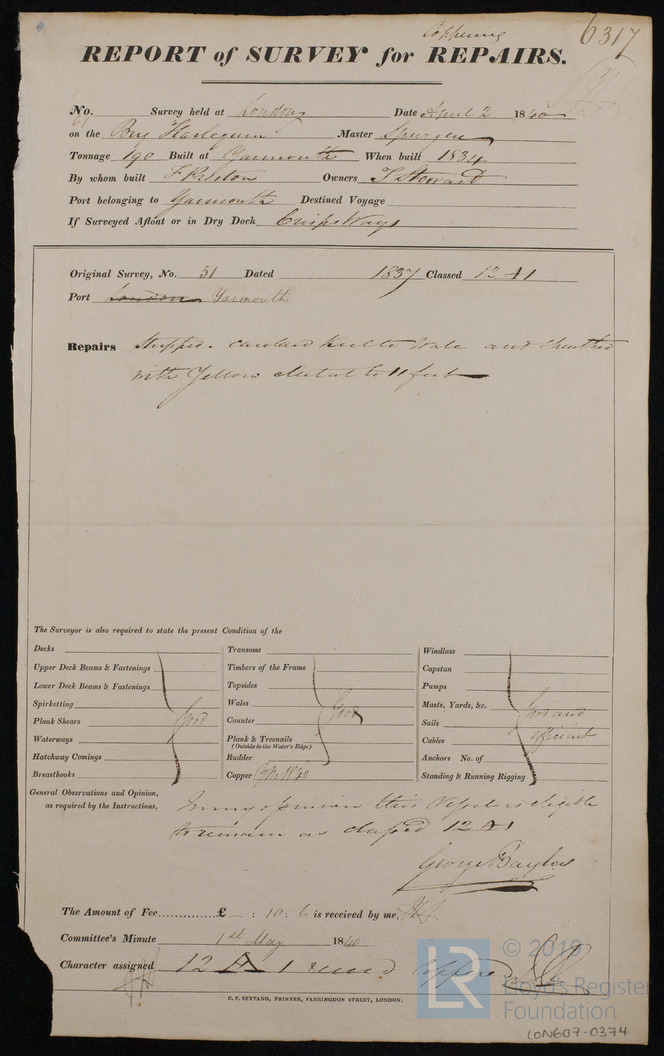 6317
Coppering
REPORT of SURVEY for REPAIRS.
No. Survey held at London Date April 2 1840
on the Brig Harlequin Master Spurgen
Tonnage 190 Built at Yarmouth When built 1834
By whom built F Preston Owners T Steward
Port belonging to Yarmouth Destined Voyage
If Surveyed Afloat or in Dry Dock Crisps Ways
Original Survey, No. 51 Dated 1837 Classed 12 A1
Port London Yarmouth
Repairs Stripped. Caulked Keel to Wale and Sheathed
with Yellow Metal to 11 feet
The Surveyor is also required to state the present Condition of the
Decks
Upper Deck Beams & Fastenings
Lower Deck Beams & Fastenings
Spirketting
Plank Shears Good
Waterways
Hatchway Comings
Breasthooks
Transoms
Timbers of the Frame
Topsides
Wales
Counter Good
Plank & Treenails
(Outside to the Water's Edge)
Rudder
Copper 1840
Windlass
Capstan
Pumps
Masts, Yards, &c. Good and
Sails efficient
Cables
Anchors No. of
Standing & Running Rigging
General Observations and Opinion, In my opinion this Vessel is eligible
as required by the Instructions, to remain as classed 12 A1
George Bayley
The Amount of Fee..............£ : 10: 6 is received by me,
Committee's Minute 1st May 1840
Character assigned 12 A 1 Coppered
C. F. SEYFANG, PRINTER, FARRINGDON STREET, LONDON.
LR © 2019
Lloyd's Register
Foundation
LON607-0374